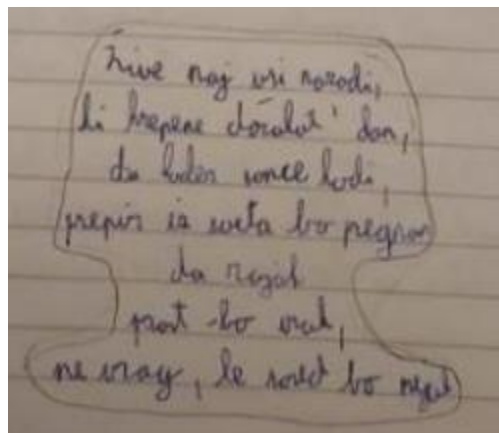 Žive naj vsi narodi,
ki hrepene dočakat' dan,
da koder sonce hodi,
prepir iz sveta bo pregnan
da rojak
prost bo vsak,
ne vrag, le sosed bo mejak